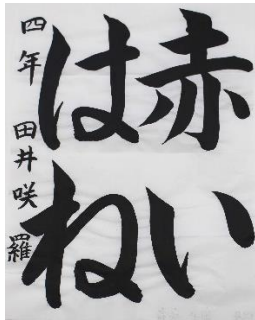 赤い
はね
四年 田井咲羅